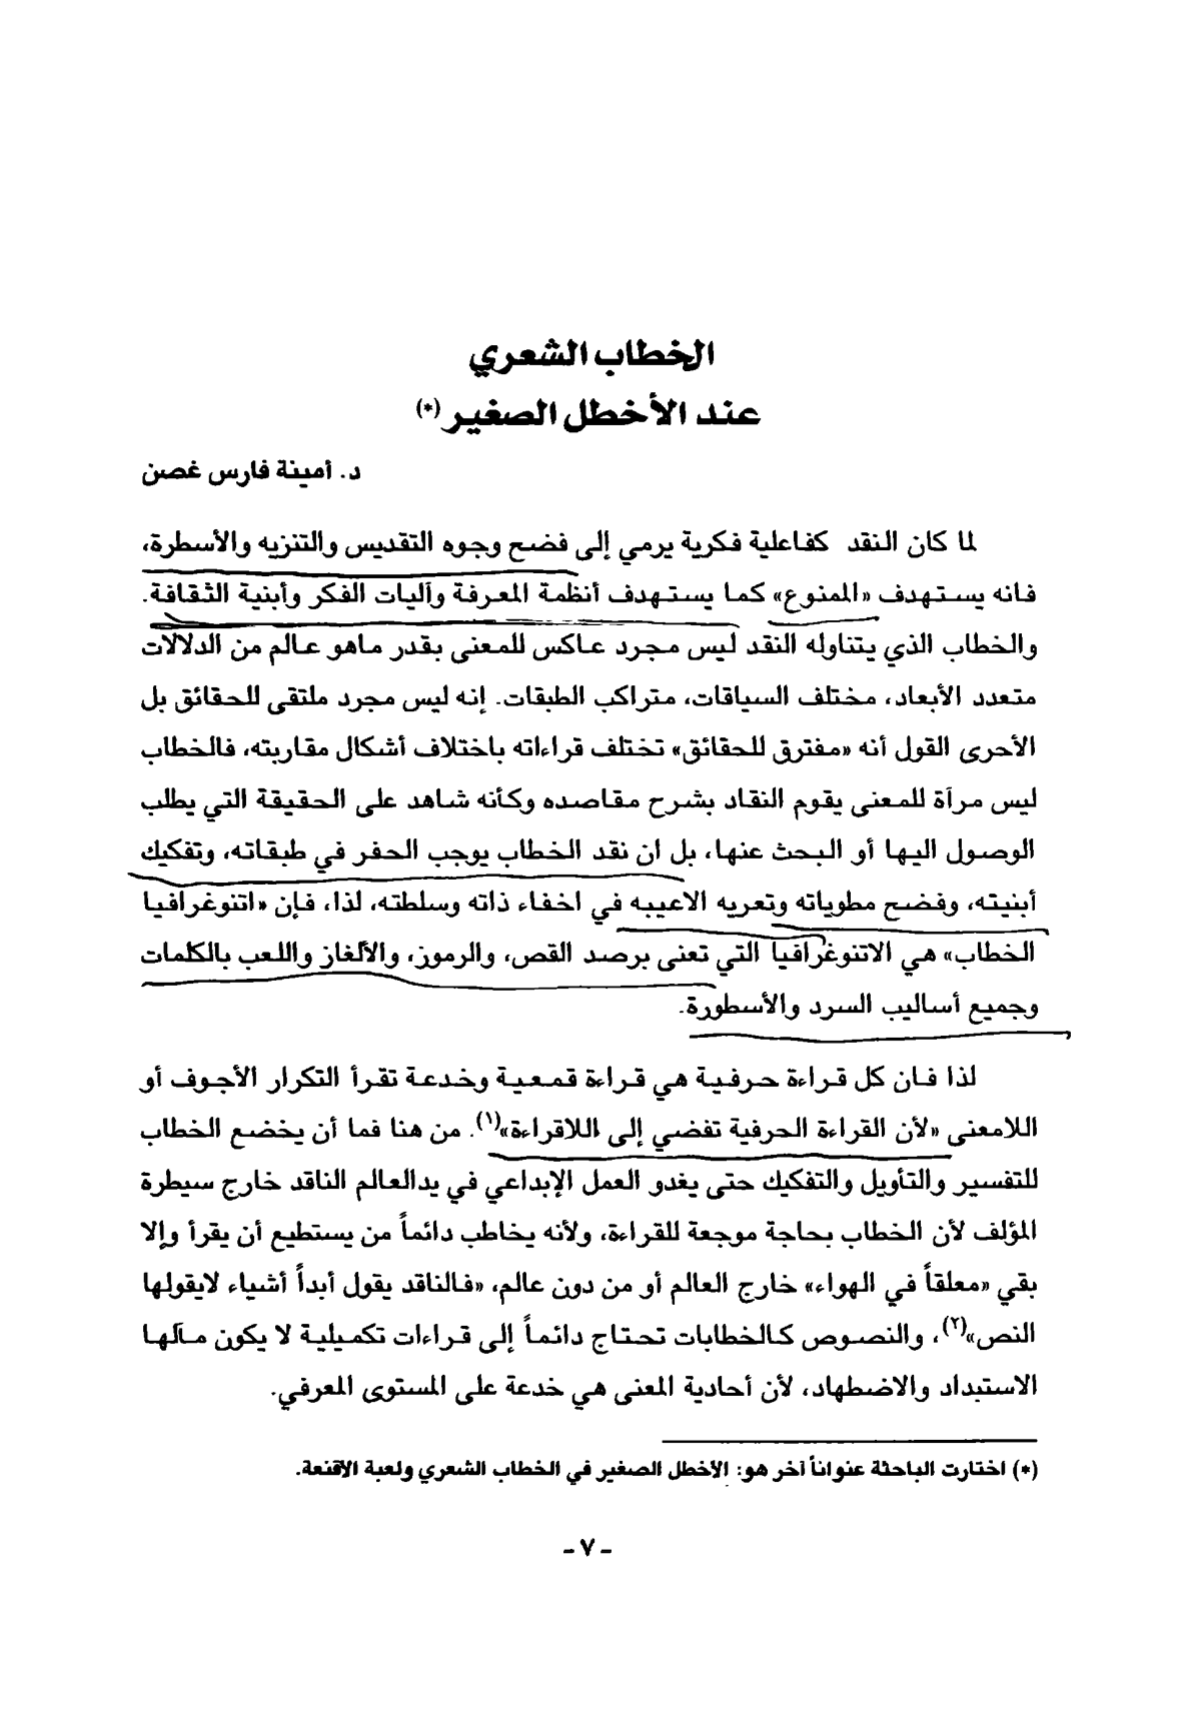 الخطاب الشعري
عند الأخطل الصغير (*)
د. أمينة فارس غصن
لما كان النقد كفاعلية فكرية يرمي إلى فضح وجوه التقديس والتنزيه والأسطرة،
فانه يستهدف «الممنوع» كما يستهدف أنظمة المعرفة وآليات الفكر وأبنية الثقافة.
والخطاب الذي يتناوله النقد ليس مجرد عاكس للمعنى بقدر ماهو عالم من الدلالات
متعدد الأبعاد، مختلف السياقات، متراكب الطبقات. إنه ليس مجرد ملتقى للحقائق بل
الأحرى القول أنه «مفترق للحقائق» تختلف قراءاته باختلاف أشكال مقاربته، فالخطاب
ليس مرآة للمعنى يقوم النقاد بشرح مقاصده وكأنه شاهد على الحقيقة التي يطلب
الوصول اليها أو البحث عنها، بل ان نقد الخطاب يوجب الحفر في طبقاته، وتفكيك
أبنيته، وفضح مطوياته وتعريه الاعيبه في اخفاء ذاته وسلطته، لذا، فإن «اتنوغرافيا
الخطاب» هي الاتنوغرافيا التي تعنى برصد القص، والرموز، والألغاز واللعب بالكلمات
وجميع أساليب السرد والأسطورة.
لذا فان كل قراءة حرفية هي قراءة قمعية وخدعة تقرأ التكرار الأجوف أو
اللامعنى «لأن القراءة الحرفية تفضي إلى اللاقراءة»(١). من هنا فما أن يخضع الخطاب
للتفسير والتأويل والتفكيك حتى يغدو العمل الإبداعي في يدالعالم الناقد خارج سيطرة
المؤلف لأن الخطاب بحاجة موجعة للقراءة، ولأنه يخاطب دائماً من يستطيع أن يقرأ وإلا
بقي «معلقاً في الهواء» خارج العالم أو من دون عالم، «فالناقد يقول أبداً أشياء لايقولها
النص»(٢)، والنصوص كالخطابات تحتاج دائماً إلى قراءات تكميلية لا يكون مآلها
الاستبداد والاضطهاد، لأن أحادية المعنى هي خدعة على المستوى المعرفي.
(*) اختارت الباحثة عنواناً آخر هو: الأخطل الصغير في الخطاب الشعري ولعبة الأقنعة.
- ٧ -